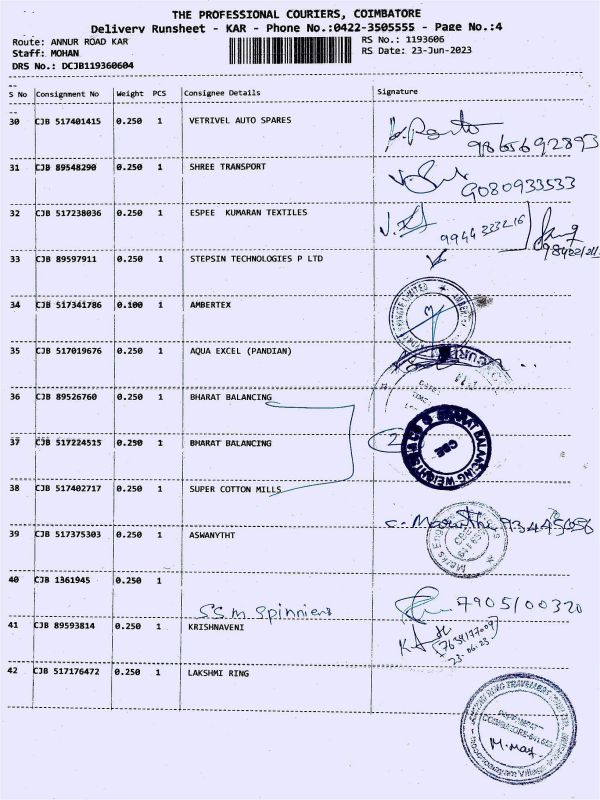 THE PROFESSIONAL COURIERS, COIMBATORE
Delivery Runsheet - KAR - Phone No.:0422-3505555 - Page No.:4
Route: ANNUR ROAD KAR
RS No.: 1193606
Staff: MOHAN
RS Date: 23-Jun-2023
DRS No.: DCJB119360604
S No Consignment No Weight PCS Consignee Details Signature
30 CJB 517401415 0.250 1 VETRIVEL AUTO SPARES
9865692893
31 CJB 89548290 0.250 1 SHREE TRANSPORT
9080933533
32 CJB 517238036 0.250 1 ESPEE KUMARAN TEXTILES
9944333216
33 CJB 89597911 0.250 1 STEPSIN TECHNOLOGIES P LTD
34 CJB 517341786 0.100 1 AMBERTEX
35 CJB 517019676 0.250 1 AQUA EXCEL (PANDIAN)
36 CJB 89526760 0.250 1 BHARAT BALANCING
37 CJB 517224515 0.250 1 BHARAT BALANCING
2
BHARAT BALANCING WEIGHTS
CBE
38 CJB 517402717 0.250 1 SUPER COTTON MILLS
39 CJB 517375303 0.250 1 ASWANYTHT
40 CJB 1361945 0.250 1
SSM Spinniens
7905100320
41 CJB 89593814 0.250 1 KRISHNAVENI
23-06-23
42 CJB 517176472 0.250 1 LAKSHMI RING